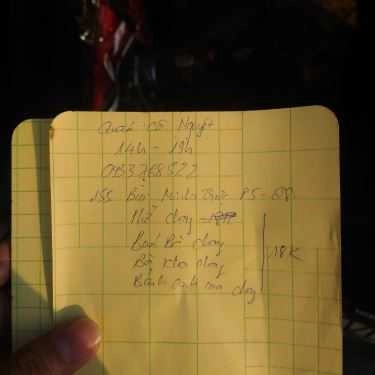 Quán Cô Nguyệt
14h - 19h
0953768522
155 Bùi Minh Trực P5-Q8
chay
Bún Bò chay
Bò kho chay
Bánh canh chay
18K